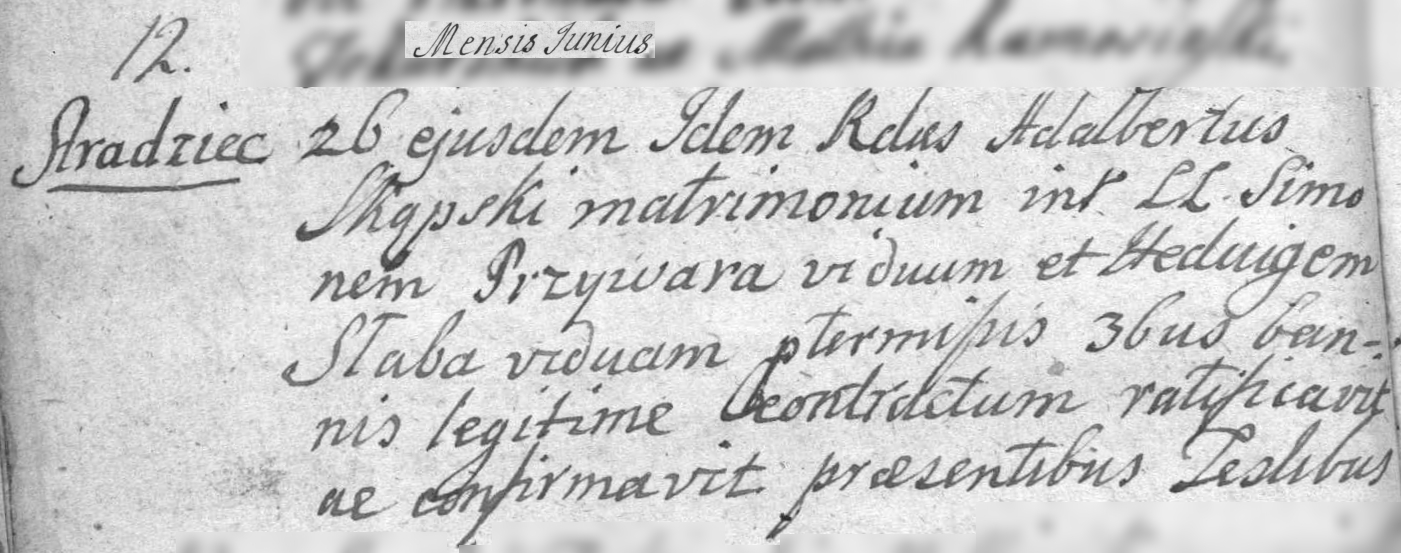 Mensis Junius
12.
Stradziec 26 ejusdem Idem Rdus Adalbertus
Skąpski matrimonium int LL. Simo
nem Przywara viduum et Heduigem
Słaba viduam ptermissis 3bus ban-
nis legitime contractum ratificavit
ac confirmavit præsentibus Testibus